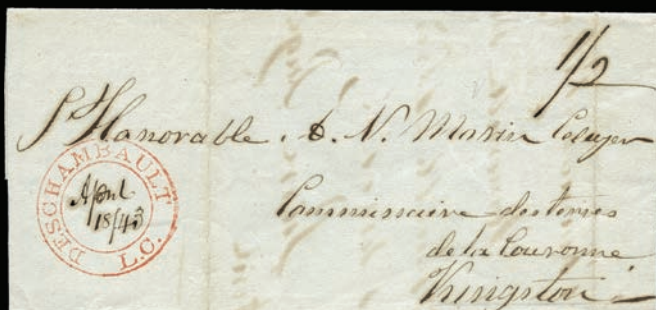 1/2
l'Honorable A. N. Morin Ecuyer
DESCHAMBAULT
April
18/43
L.C.
Commissaire des terres
de la Couronne
Kingston